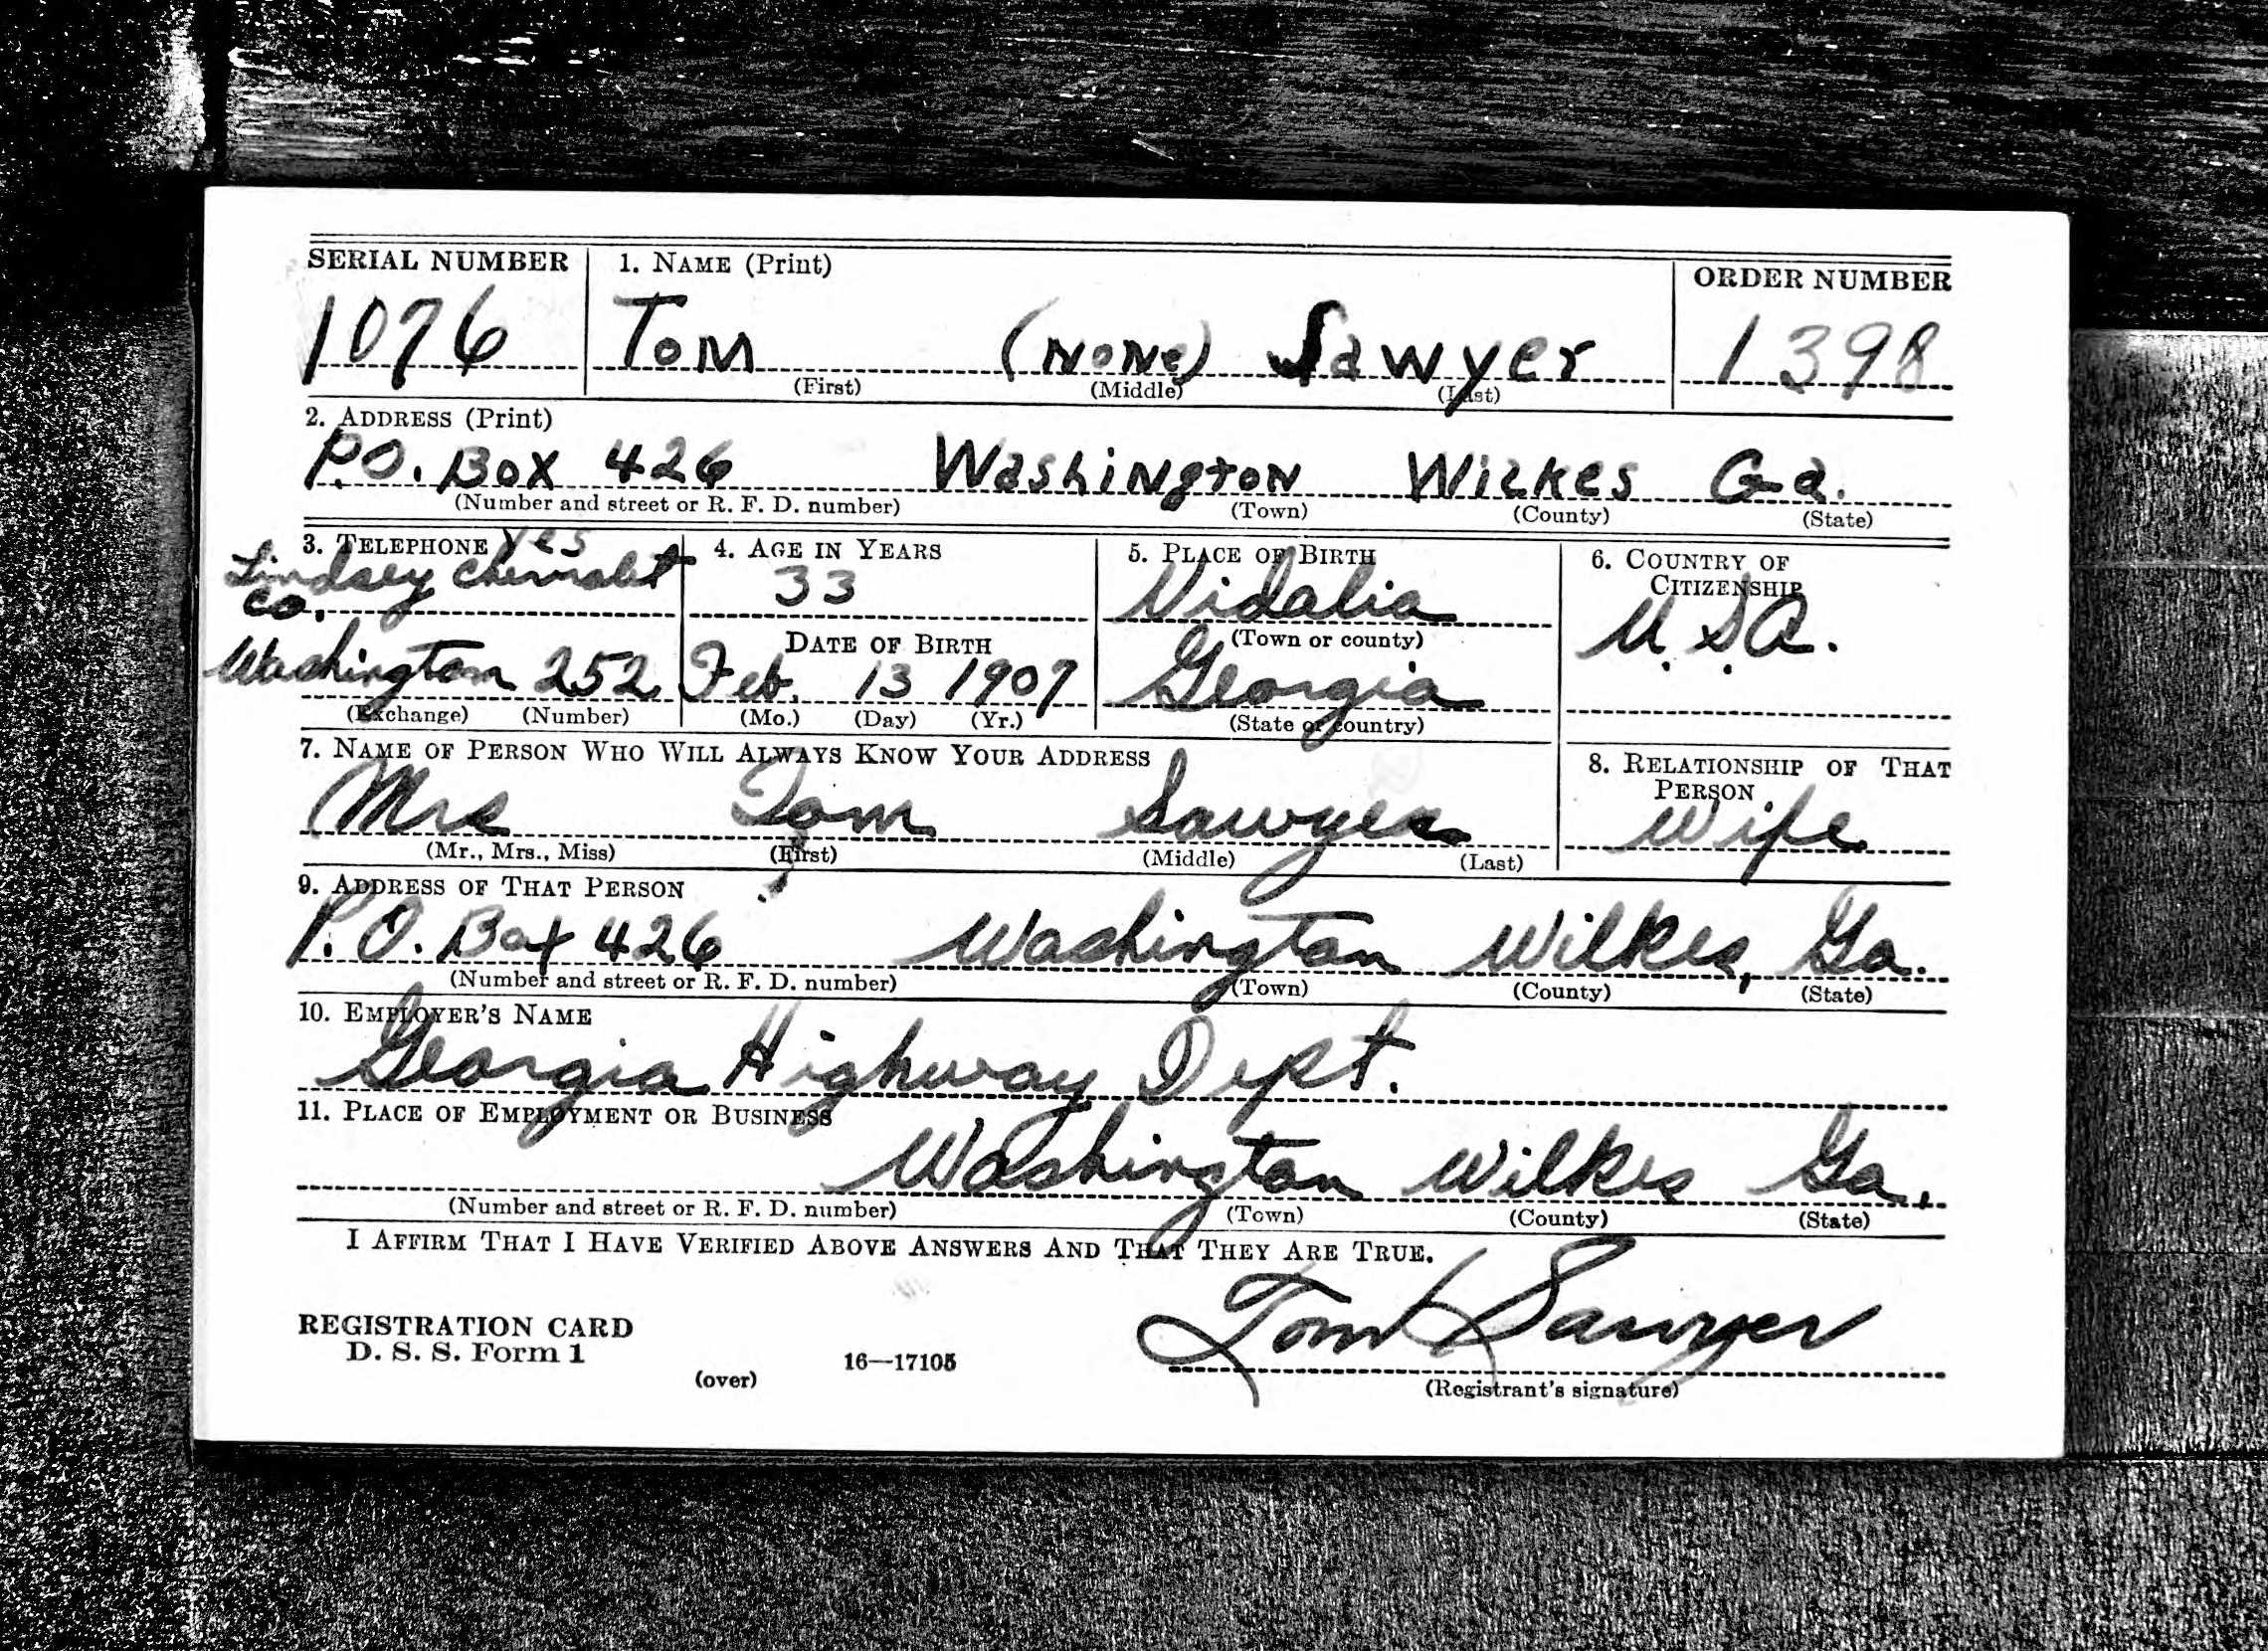 SERIAL NUMBER 1. NAME (Print) ORDER NUMBER
1076 Tom (NONe) Sawyer 1398
(First) (Middle) (Last)
2. ADDRESS (Print)
P.O. Box 426 Washington Wilkes Ga.
(Number and street or R. F. D. number) (Town) (County) (State)
3. TELEPHONE Yes 4. AGE IN YEARS 5. PLACE OF BIRTH 6. COUNTRY OF CITIZENSHIP
Lindsey Chevrolet Co. 33 Vidalia U.S.A.
DATE OF BIRTH (Town or county)
Washington 252 Feb. 13 1907 Georgia
(Exchange) (Number) (Mo.) (Day) (Yr.) (State or country)
7. NAME OF PERSON WHO WILL ALWAYS KNOW YOUR ADDRESS 8. RELATIONSHIP OF THAT PERSON
Mrs Tom Sawyer Wife
(Mr., Mrs., Miss) (First) (Middle) (Last)
9. ADDRESS OF THAT PERSON
P.O. Box 426 Washington Wilkes, Ga.
(Number and street or R. F. D. number) (Town) (County) (State)
10. EMPLOYER'S NAME
Georgia Highway Dept.
11. PLACE OF EMPLOYMENT OR BUSINESS
Washington Wilkes Ga.
(Number and street or R. F. D. number) (Town) (County) (State)
I AFFIRM THAT I HAVE VERIFIED ABOVE ANSWERS AND THAT THEY ARE TRUE.
Tom Sawyer
REGISTRATION CARD
D. S. S. Form 1
(over) 16—17105 (Registrant's signature)